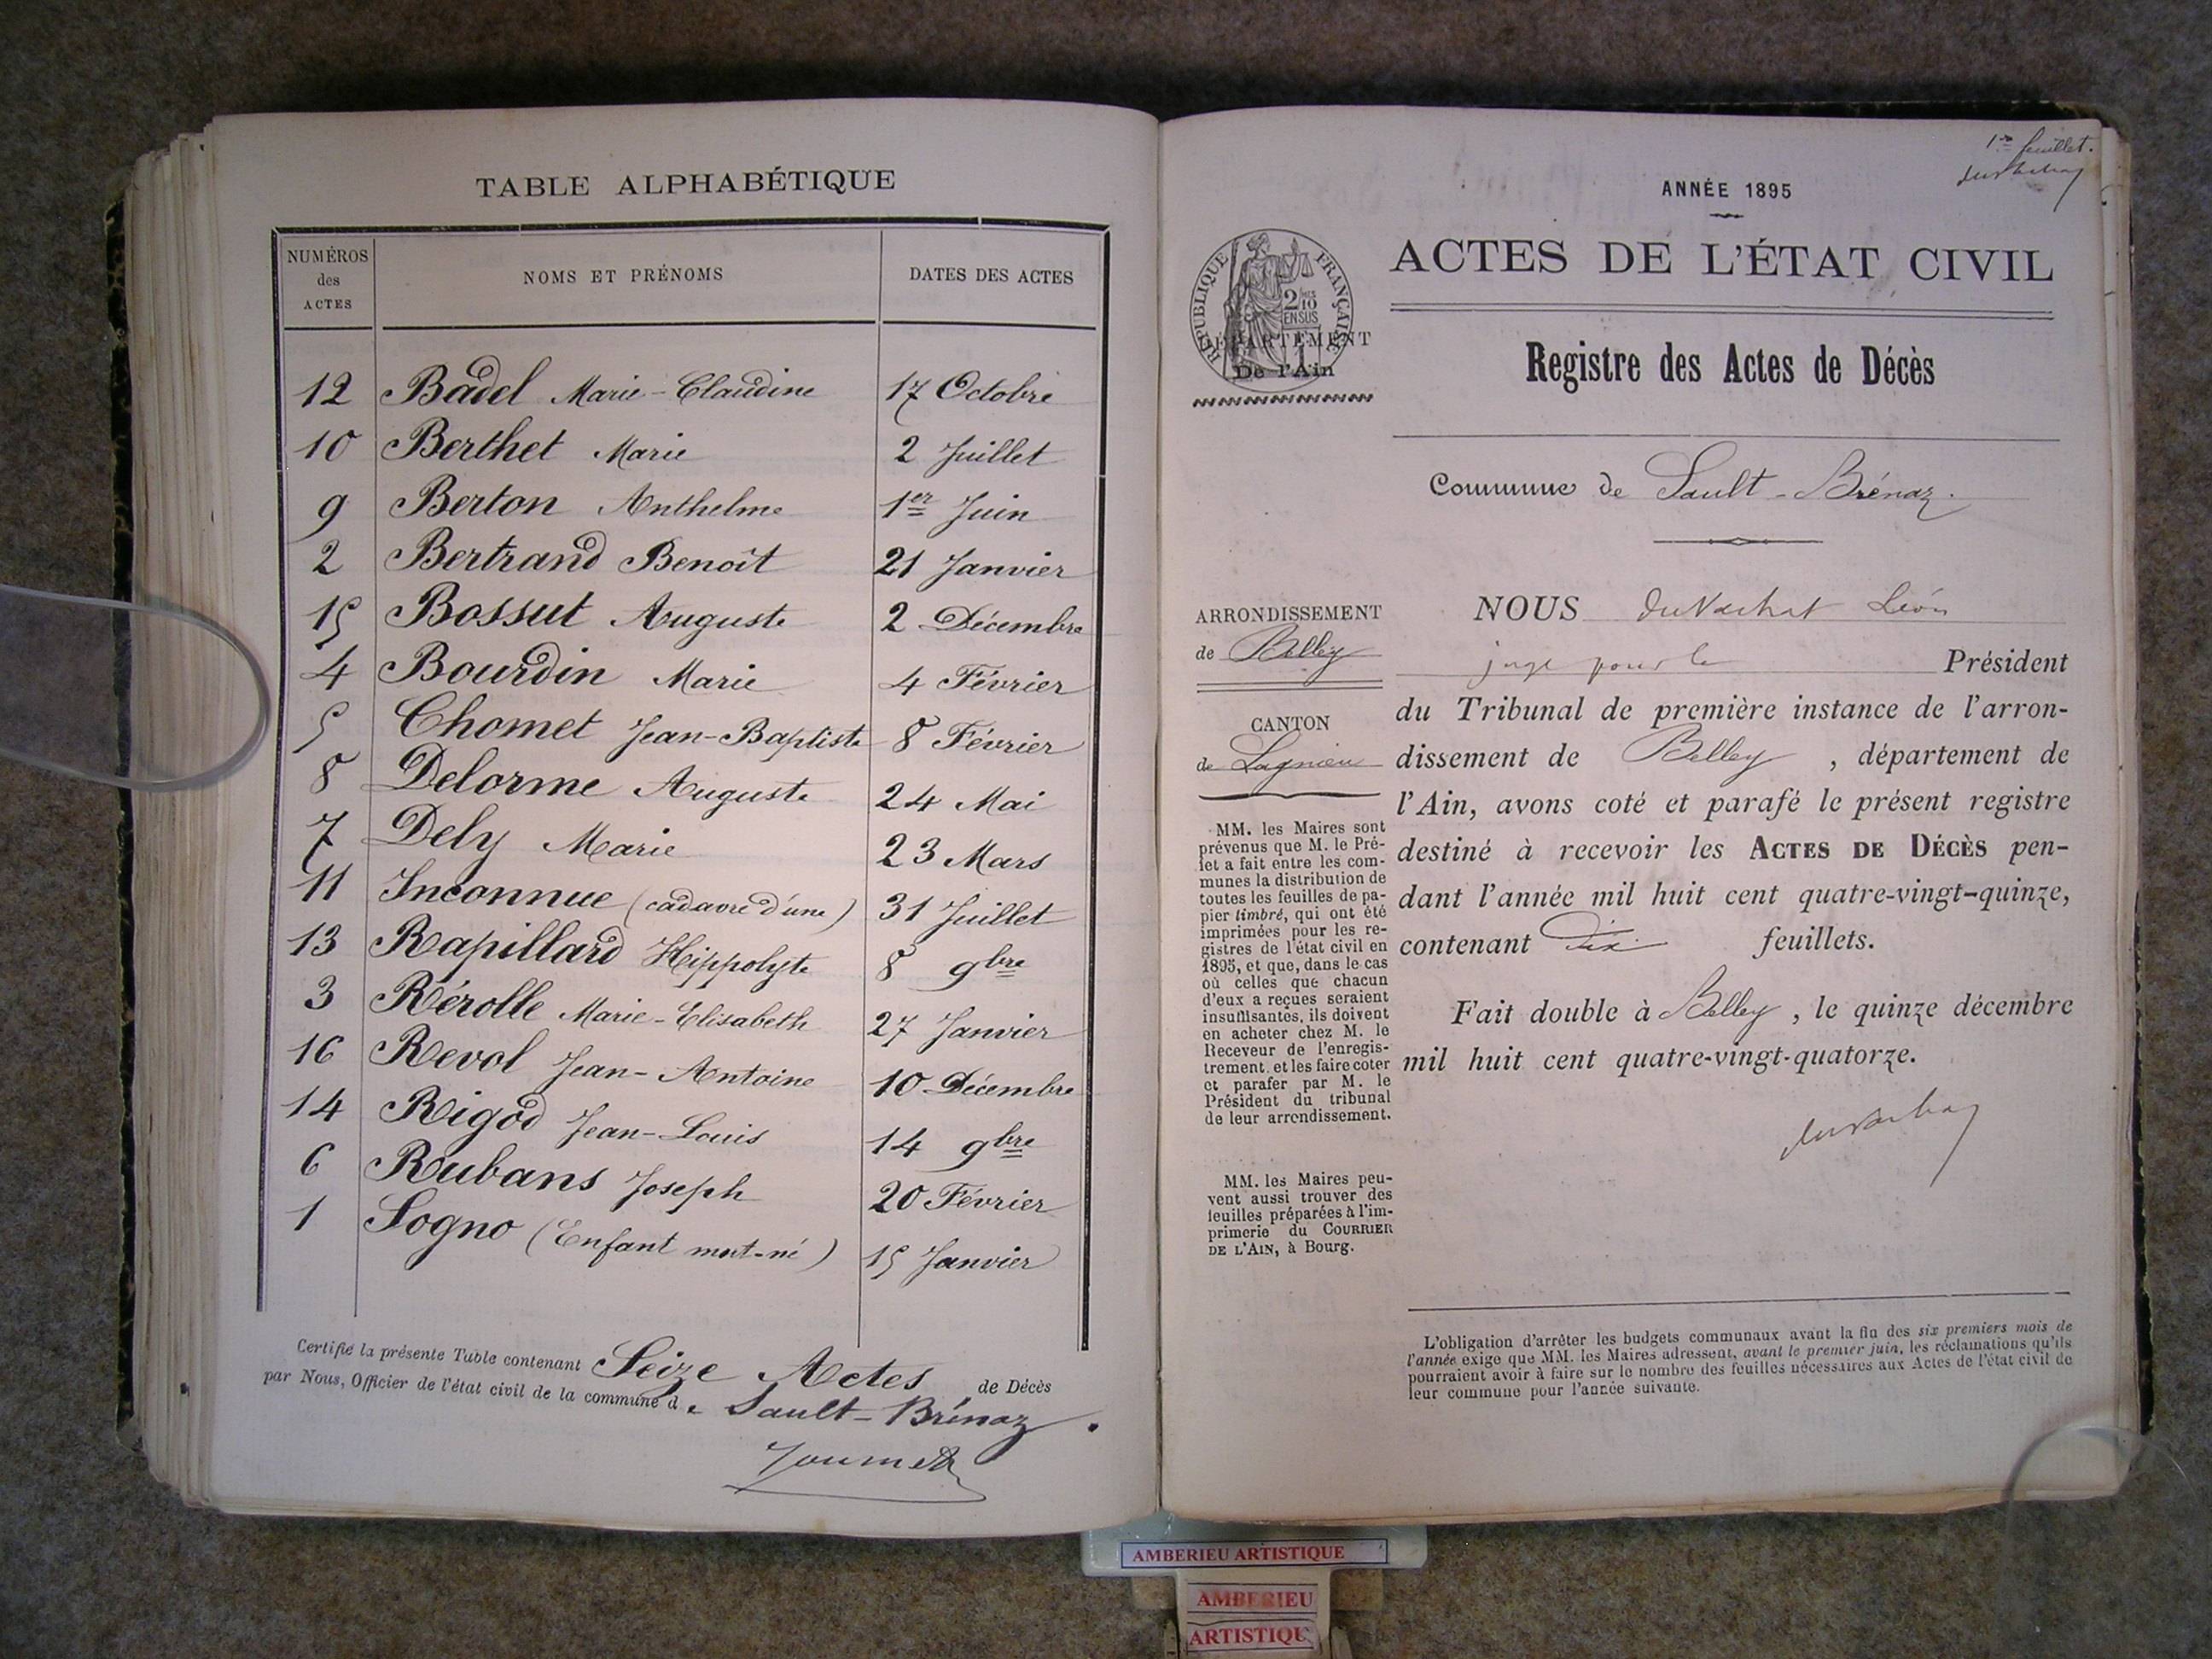 TABLE ALPHABÉTIQUE
NUMÉROS des ACTES
NOMS ET PRÉNOMS
DATES DES ACTES
12 Badel Marie-Claudine 17 Octobre
10 Berthet Marie 2 Juillet
9 Berton Anthelme 1er Juin
2 Bertrand Benoît 21 Janvier
15 Bossut Auguste 2 Décembre
4 Bourdin Marie 4 Février
5 Chomet Jean-Baptiste 8 Février
8 Delorme Auguste 24 Mai
7 Dely Marie 23 Mars
11 Inconnue (cadavre d'une) 31 Juillet
13 Rapillard Hippolyte 8 9bre
3 Rérolle Marie-Elisabeth 27 Janvier
16 Revol Jean-Antoine 10 Décembre
14 Rigod Jean-Louis 14 9bre
6 Rubans Joseph 20 Février
1 Sogno (Enfant mort-né) 15 Janvier
Certifié la présente Table contenant Seize Actes de Décès
par Nous, Officier de l'état civil de la commune de Sault-Brénaz.
1er feuillet.
ANNÉE 1895
ACTES DE L'ÉTAT CIVIL
RÉPUBLIQUE FRANÇAISE
2/10 EN SUS
DÉPARTEMENT
De l'Ain
Registre des Actes de Décès
Commune de Sault-Brénaz.
ARRONDISSEMENT
de Belley
CANTON
de Lagnieu
MM. les Maires sont
prévenus que M. le Pré-
fet a fait entre les com-
munes la distribution de
toutes les feuilles de pa-
pier timbré, qui ont été
imprimées pour les re-
gistres de l'état civil en
1895, et que, dans le cas
où celles que chacun
d'eux a reçues seraient
insuffisantes, ils doivent
en acheter chez M. le
Receveur de l'enregis-
trement et les faire coter
et parafer par M. le
Président du tribunal
de leur arrondissement.
MM. les Maires peu-
vent aussi trouver des
feuilles préparées à l'im-
primerie du COURRIER
DE L'AIN, à Bourg.
NOUS Duvachat Léon
juge pour le Président
du Tribunal de première instance de l'arron-
dissement de Belley, département de
l'Ain, avons coté et parafé le présent registre
destiné à recevoir les ACTES DE DÉCÈS pen-
dant l'année mil huit cent quatre-vingt-quinze,
contenant Dix feuillets.
Fait double à Belley, le quinze décembre
mil huit cent quatre-vingt-quatorze.
L'obligation d'arrêter les budgets communaux avant la fin des six premiers mois de
l'année exige que MM. les Maires adressent, avant le premier juin, les réclamations qu'ils
pourraient avoir à faire sur le nombre des feuilles nécessaires aux Actes de l'état civil de
leur commune pour l'année suivante.
AMBERIEU ARTISTIQUE
AMBERIEU
ARTISTIQU